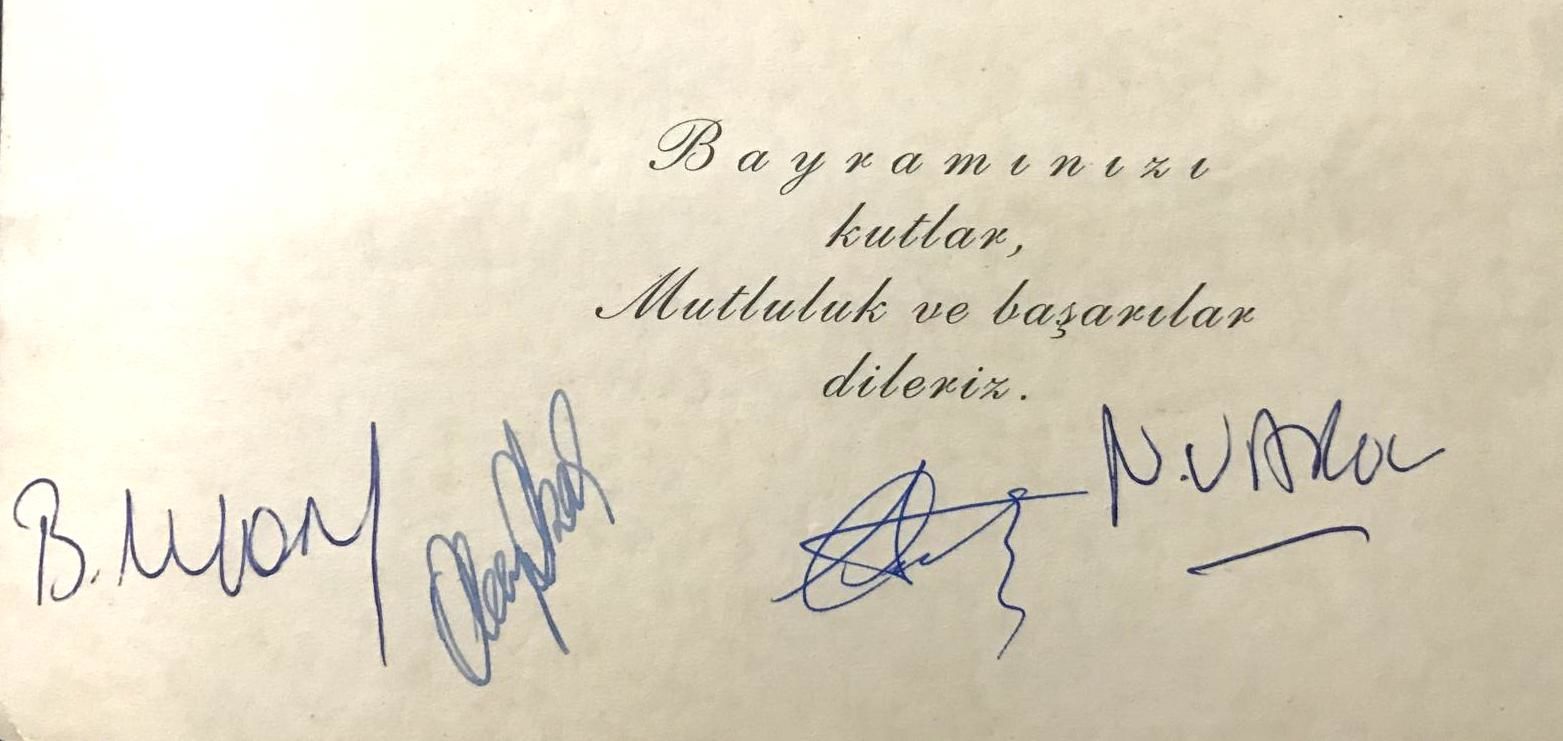 Bayramınızı
kutlar,
Mutluluk ve başarılar
dileriz.